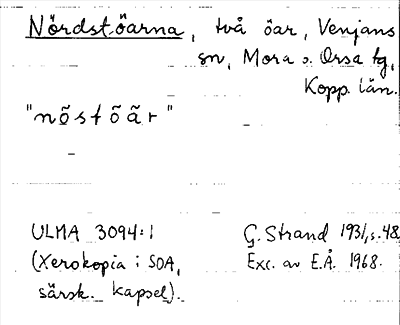 Nördst.öarna, två öar, Venjans
sn, Mora o. Orsa tg,
Kopp. län.
"nõstõãr"
ULMA 3094:1
(Xerokopia i SOA,
särsk. kapsel).
G. Strand 1931, s. 48
Exc. av E.Å. 1968.